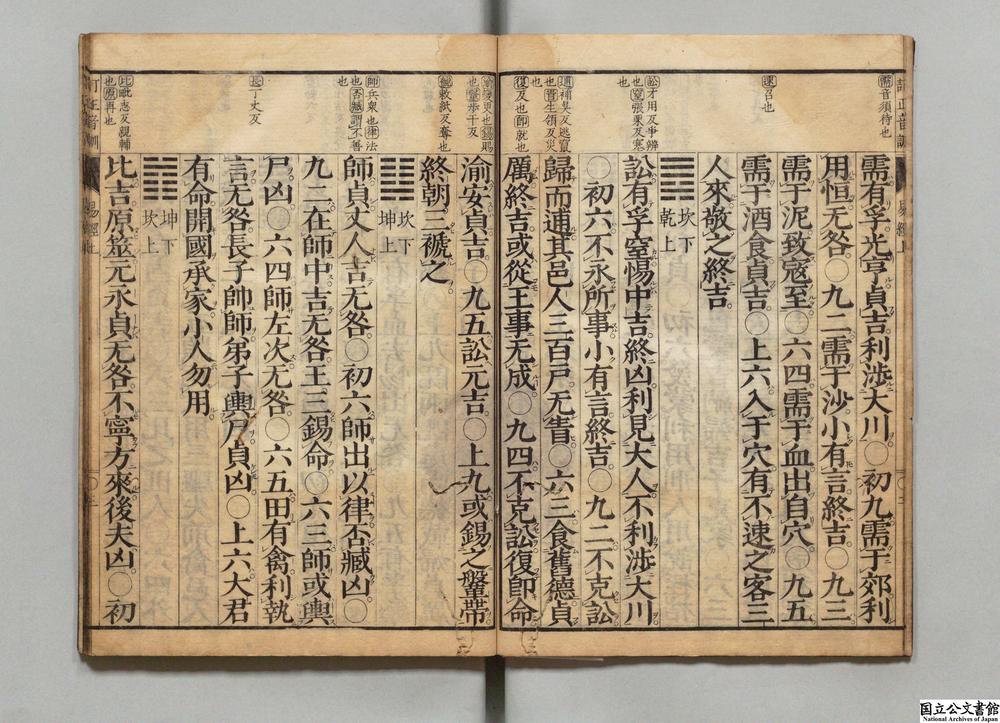 需有孚光亨貞吉利渉大川○初九需于郊利
用恒无咎○九二需于沙小有言終吉○九三
需于泥致寇至○六四需于血出自穴○九五
需于酒食貞吉○上六入于穴有不速之客三
人來敬之終吉
坎下
乾上
訟有孚窒惕中吉終凶利見大人不利渉大川
○初六不永所事小有言終吉○九二不克訟
歸而逋其邑人三百戸无眚○六三食舊德貞
厲終吉或從王事无成○九四不克訟復即命
渝安貞吉○九五訟元吉○上九或錫之鞶帶
終朝三褫之
坎下
坤上
師貞丈人吉无咎○初六師出以律否臧凶○
九二在師中吉无咎王三錫命○六三師或輿
尸凶○六四師左次无咎○六五田有禽利執
言无咎長子帥師弟子輿尸貞凶○上六大君
有命開國承家小人勿用
坤下
坎上
比吉原筮元永貞无咎不寧方來後夫凶○初
需音須待也
速召也
訟才用反爭辨
也窒張栗反塞
也
逋補吴反逃竄
也眚生領反災
也
復反也即就也
渝變更也錫賜
也鞶歩干反
褫敕紙反奪也
師兵衆也律法
也否臧謂不善
也
長丁丈反
比毗志反親輔
也原再也
易經上
国立公文書館
National Archives of Japan